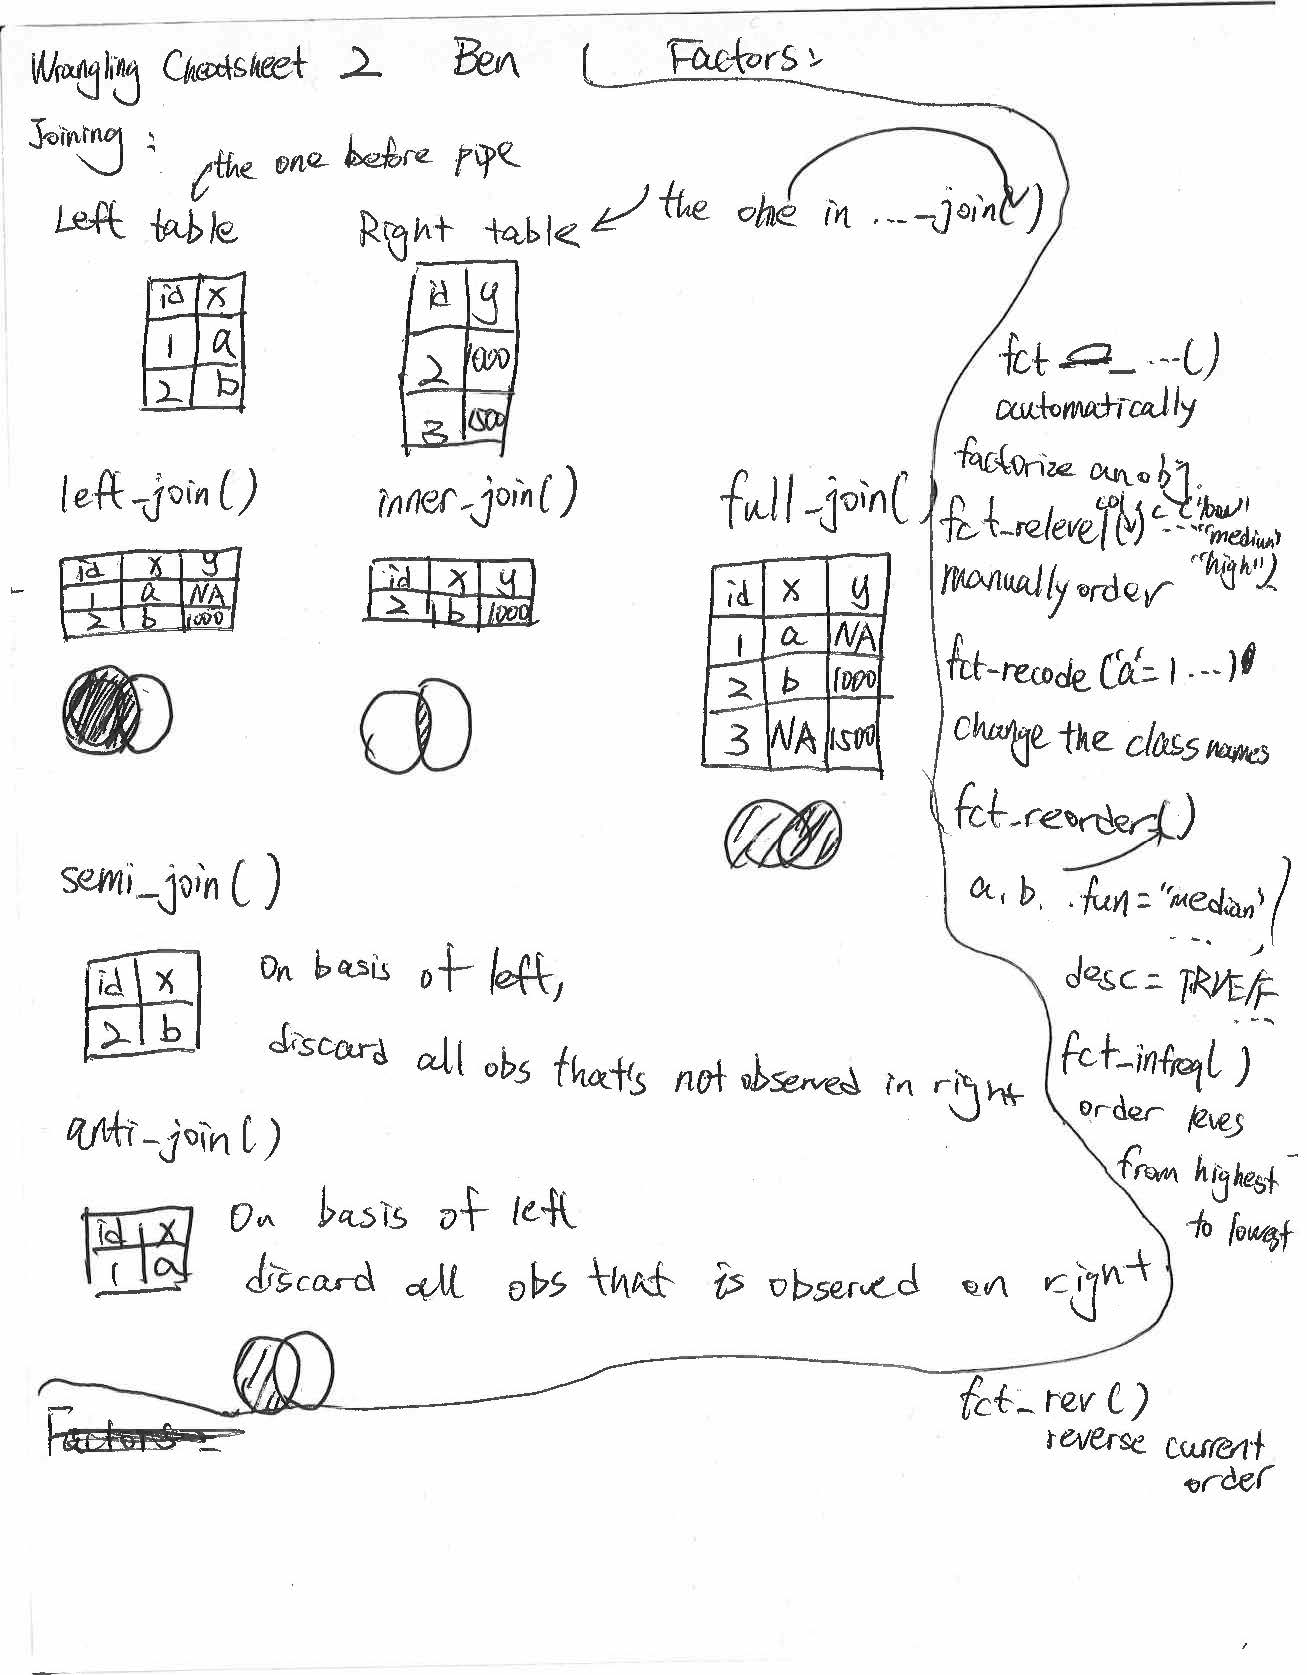 Wrangling Cheatsheet 2 Ben
Joining :
the one before pipe
Left table
Right table
the one in ...._join()
id x
1 a
2 b
id y
2 1000
3 1500
left_join()
inner_join()
full_join()
id x y
1 a NA
2 b 1000
id x y
2 b 1000
id x y
1 a NA
2 b 1000
3 NA 1500
semi_join()
id x
2 b
On basis of left,
discard all obs that's not observed in right
anti_join()
id x
1 a
On basis of left
discard all obs that is observed on right
Factors:
Factors:
fct_...()
automatically
factorize an obj.
fct_relevel() col, c("low"
"medium"
"high")
manually order
fct-recode('a'=1 ...)
change the class names
fct-reorder()
a, b, .fun="median"
desc = TRUE/F
fct_infreq()
order leves
from highest
to lowest
fct_rev()
reverse current
order